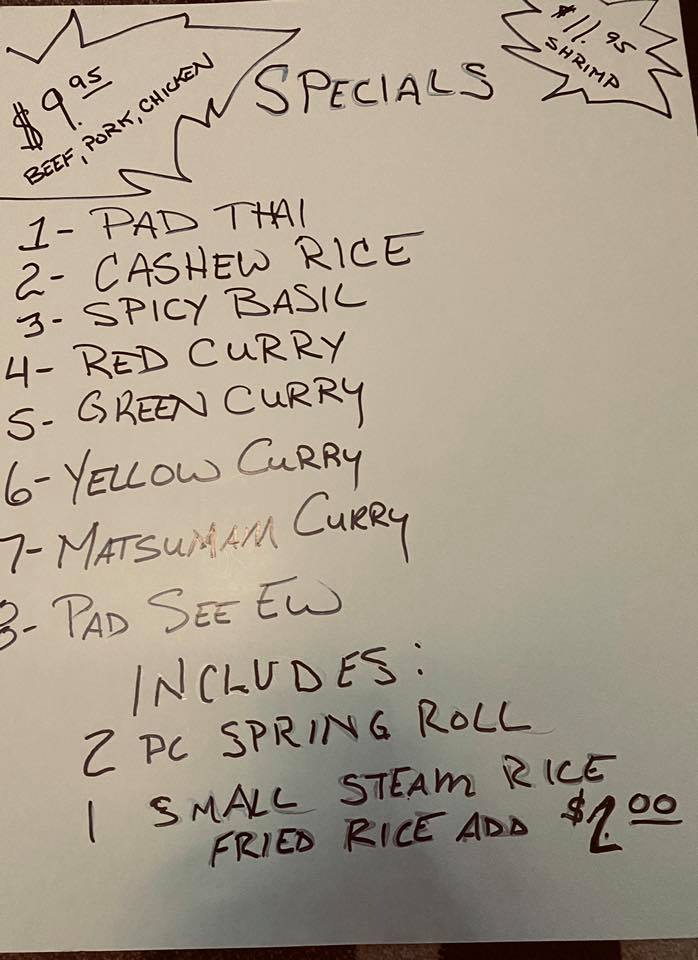 $9.95
BEEF, PORK, CHICKEN
SPECIALS
$11.95
SHRIMP
1- PAD THAI
2- CASHEW RICE
3- SPICY BASIL
4- RED CURRY
5- GREEN CURRY
6- YELLOW CURRY
7- MATSUMAM CURRY
8- PAD SEE EW
INCLUDES:
2 PC SPRING ROLL
1 SMALL STEAM RICE
FRIED RICE ADD $2.00